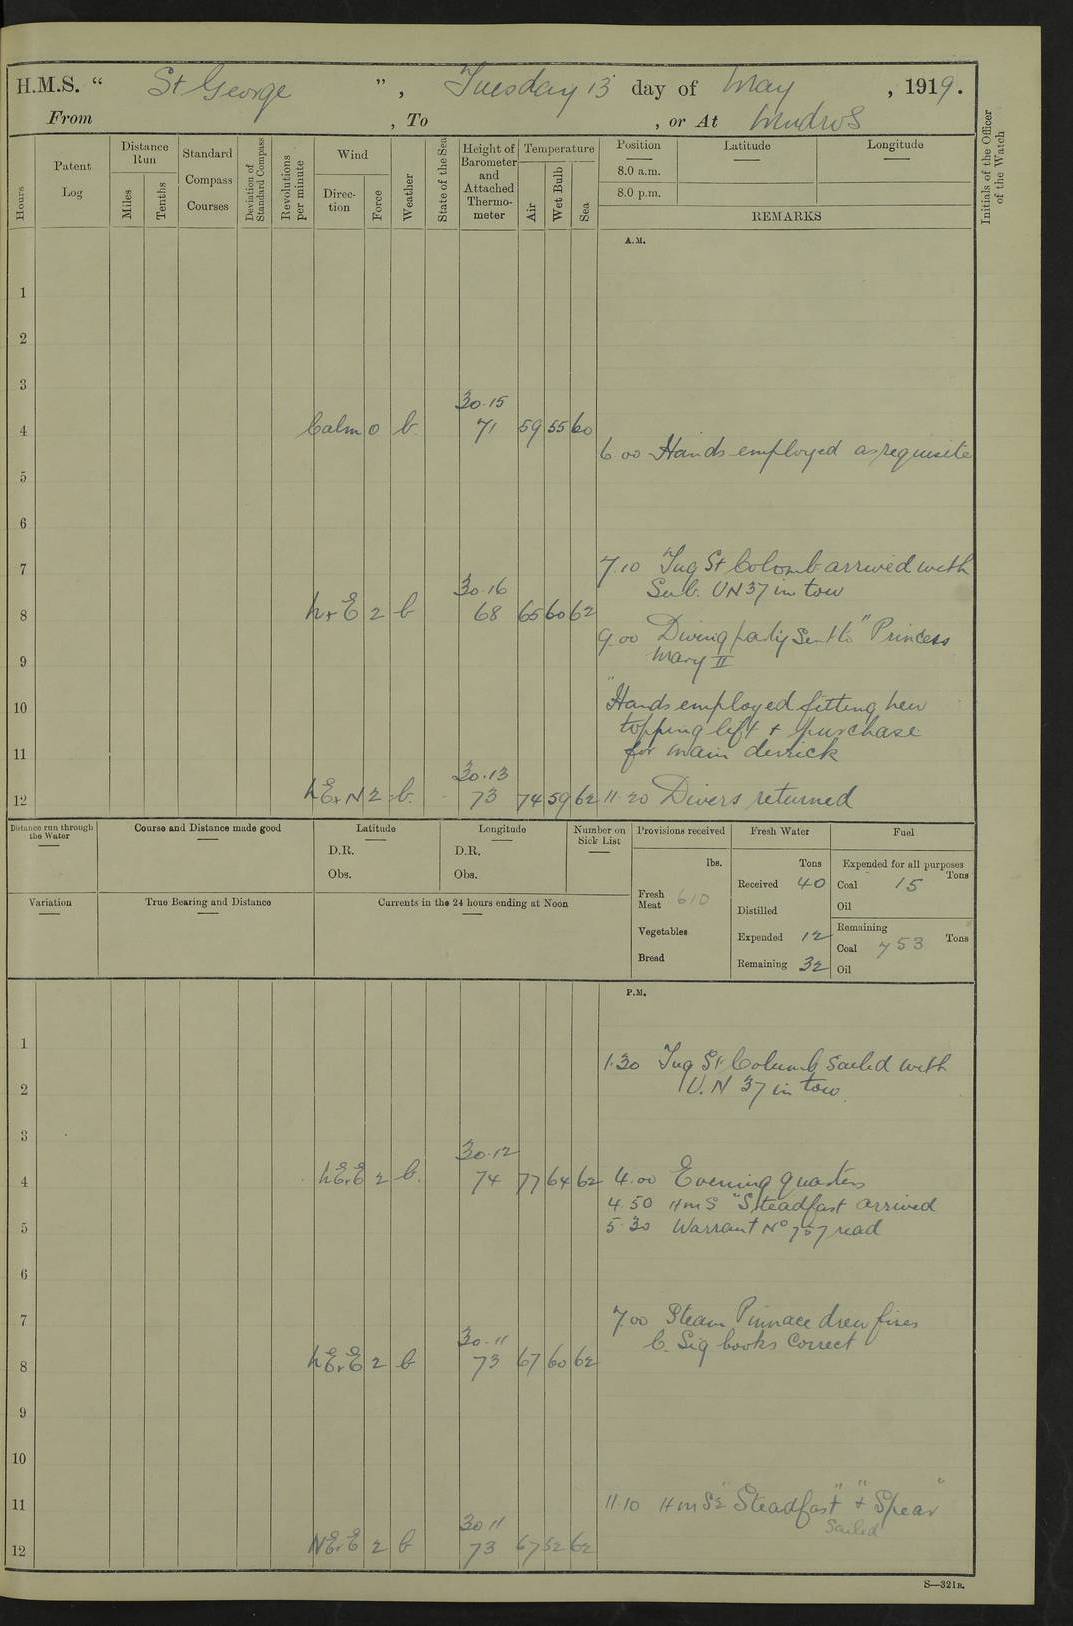 H.M.S. “ St George ” , Tuesday 13 day of May , 1919.
From , To , or At Mudros
Hours
Patent Log
Distance Run
Miles
Tenths
Standard Compass Courses
Deviation of Standard Compass
Revolutions per minute
Wind
Direction
Force
Weather
State of the Sea
Height of Barometer and Attached Thermometer
Temperature
Air
Wet Bulb
Sea
Position
8.0 a.m.
8.0 p.m.
Latitude
Longitude
REMARKS
Initials of the Officer of the Watch
A.M.
1
2
3
30.15
4 Calm 0 b 71 59 55 60
6 00 Hands employed as requisite
5
6
7 7.10 Tug St Colomb arrived with
Sub. UN 37 in tow
30.16
8 NxE 2 b 68 65 60 62
9.00 Diving party sent to "Princess
Mary II
9
10 "Hands employed fitting new
topping lift + purchase
11 for main derrick
30.13
12 NExN 2 b. 73 74 59 62 11.20 Divers returned
Distance run through the Water
Course and Distance made good
Latitude
D.R.
Obs.
Longitude
D.R.
Obs.
Number on Sick List
Provisions received
lbs.
Fresh Meat 610
Vegetables
Bread
Fresh Water
Tons
Received 40
Distilled
Expended 12
Remaining 32
Fuel
Expended for all purposes
Coal 15 Tons
Oil
Remaining
Coal 753 Tons
Oil
Variation
True Bearing and Distance
Currents in the 24 hours ending at Noon
P.M.
1
1.30 Tug St Columb sailed with
2 U.N 37 in tow.
3
30.12
4 NExE 2 b. 74 77 64 62 4.00 Evening quarters
4.50 HMS "Steadfast arrived
5 5.30 Warrant No 757 read
6
7 7.00 Steam Pinnace drew fires
C. Sig books correct
30.11
8 NExE 2 b 73 67 60 62
9
10
11 11.10 HMSs "Steadfast" + "Spear"
Sailed
30 11
12 NExE 2 b 73 67 52 62
S—321B.